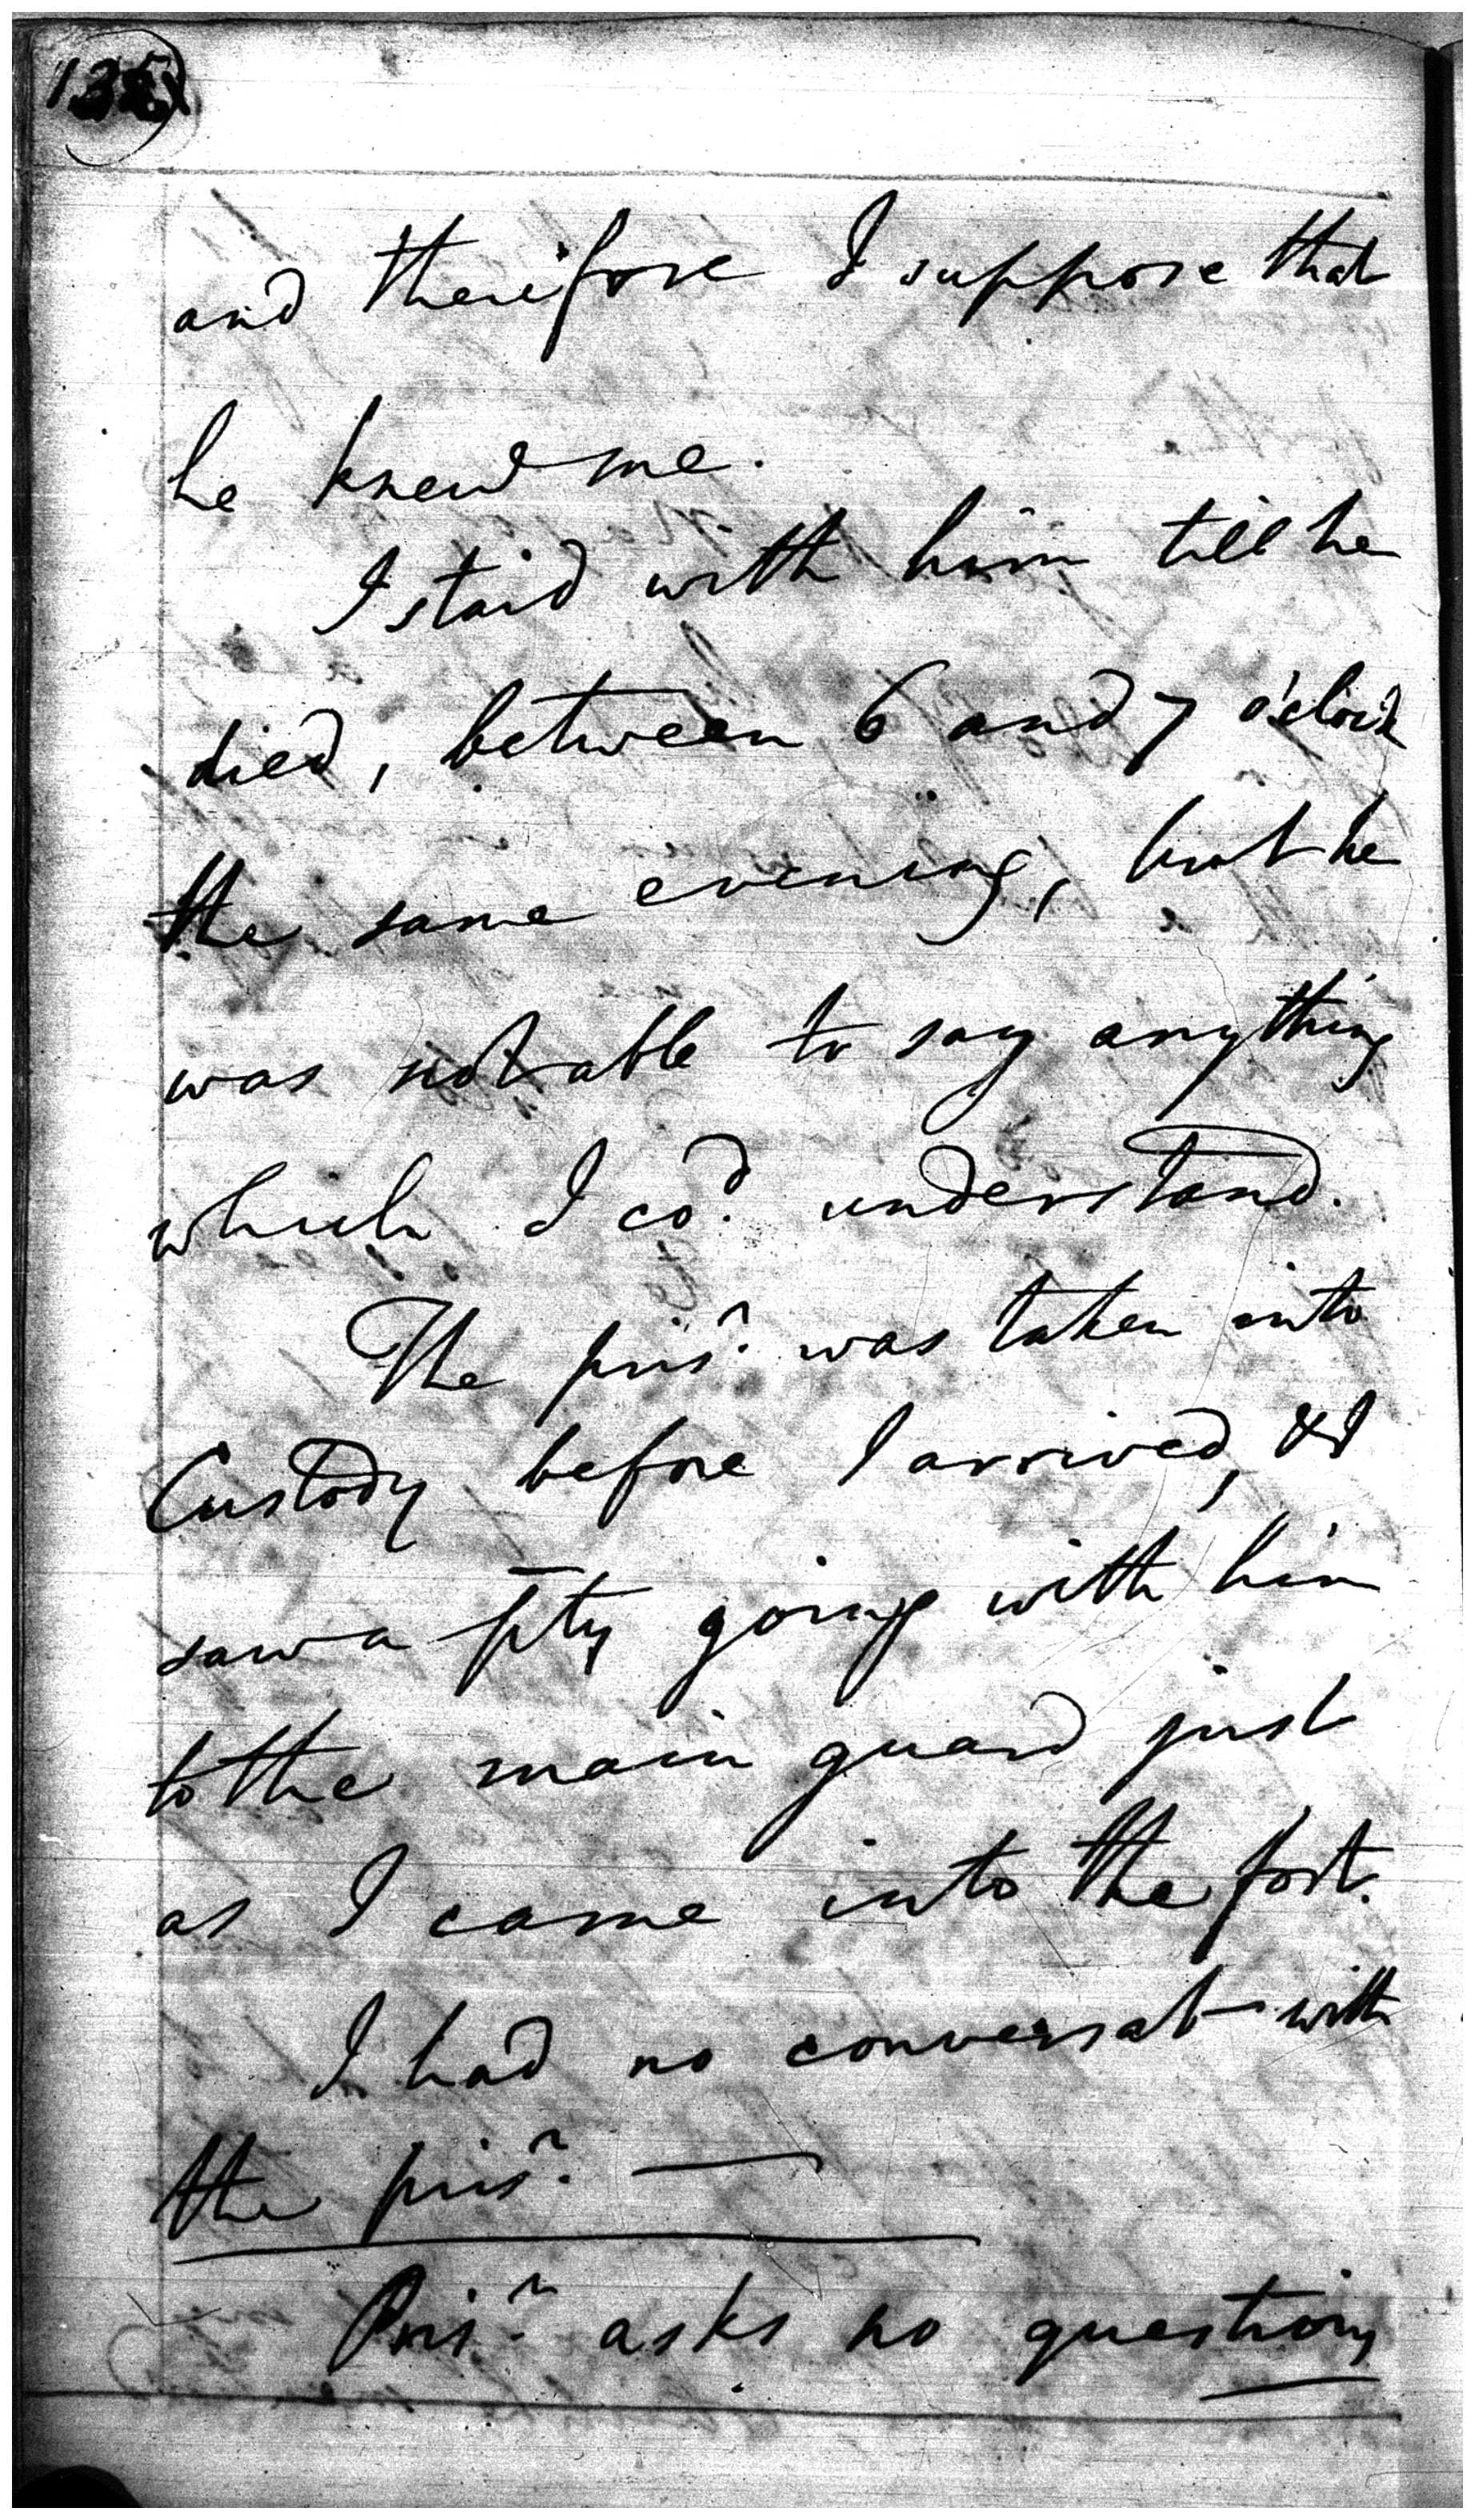 and therefore I suppose that
he knew me.
I staid with him till he
died, between 6 and 7 o'clock
the same evening, but he
was not able to say anything
which I cod. understand.
The prisr. was taken into
Custody before I arrived, & I
saw a pty going with him
to the main guard just
as I came into the fort.
I had no conversat with
the prisr. —
Prisr. asks no questions